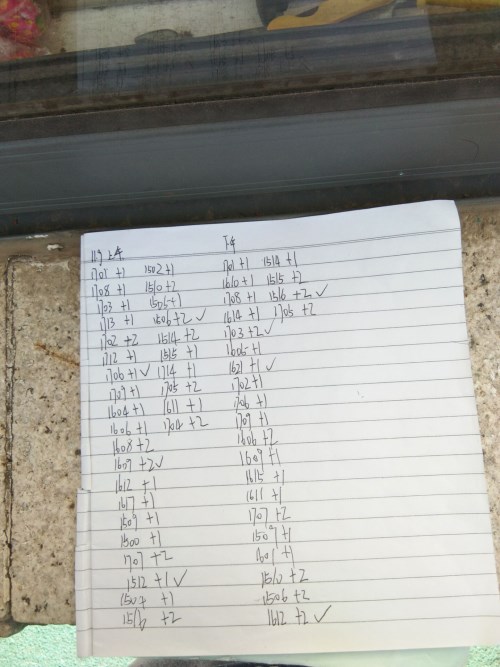 上午 下午
1701 +1 1502 +1 1701 +1 1514 +1
1708 +1 1510 +2 1610 +1 1515 +2
1703 +1 1505 +1 1708 +1 1516 +2 ✓
1713 +1 1506 +2 ✓ 1614 +1 1705 +2
1702 +2 1514 +2 1703 +2 ✓
1712 +1 1515 +1 1605 +1
1706 +1 ✓ 1714 +1 1621 +1 ✓
1709 +1 1705 +2 1702 +1
1604 +1 1611 +1 1706 +1
1606 +1 1704 +2 1709 +1
1608 +2 1606 +2
1609 +2 ✓ 1609 +1
1612 +1 1615 +1
1617 +1 1611 +1
1509 +1 1707 +2
1500 +1 1509 +1
1707 +2 1601 +1
1512 +1 ✓ 1510 +2
1507 +1 1506 +2
1516 +2 1612 +2 ✓